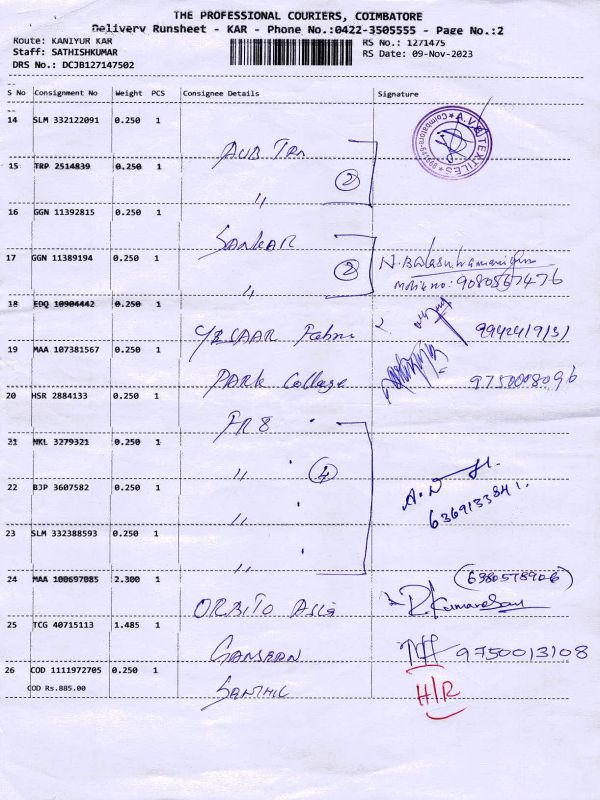 THE PROFESSIONAL COURIERS, COIMBATORE
Delivery Runsheet - KAR - Phone No.:0422-3505555 - Page No.:2
Route: KANIYUR KAR
Staff: SATHISHKUMAR
DRS No.: DCJB127147502
RS No.: 1271475
RS Date: 09-Nov-2023
S No Consignment No Weight PCS Consignee Details Signature
14 SLM 332122091 0.250 1
A.V. TEXTILES * Coimbatore
15 TRP 2514839 0.250 1
2
"
16 GGN 11392815 0.250 1
Sankar
17 GGN 11389194 0.250 1
2
"
N. Balasubramaniyan
Mobile no: 9080567476
18 EDQ 10904442 0.250 1
YESAAR Fabric
19 MAA 107381567 0.250 1
PARK College
9750008096
20 HSR 2884133 0.250 1
FR8
21 NKL 3279321 0.250 1
" 4
22 BJP 3607582 0.250 1
"
6369133841.
23 SLM 332388593 0.250 1
"
24 MAA 100697085 2.300 1
ORBITO Asia
6380578906
R. Kumaresan
25 TCG 40715113 1.485 1
GANSHAN
9750013108
26 COD 1111972705 0.250 1
COD Rs.885.00
SENTHIL
H/R